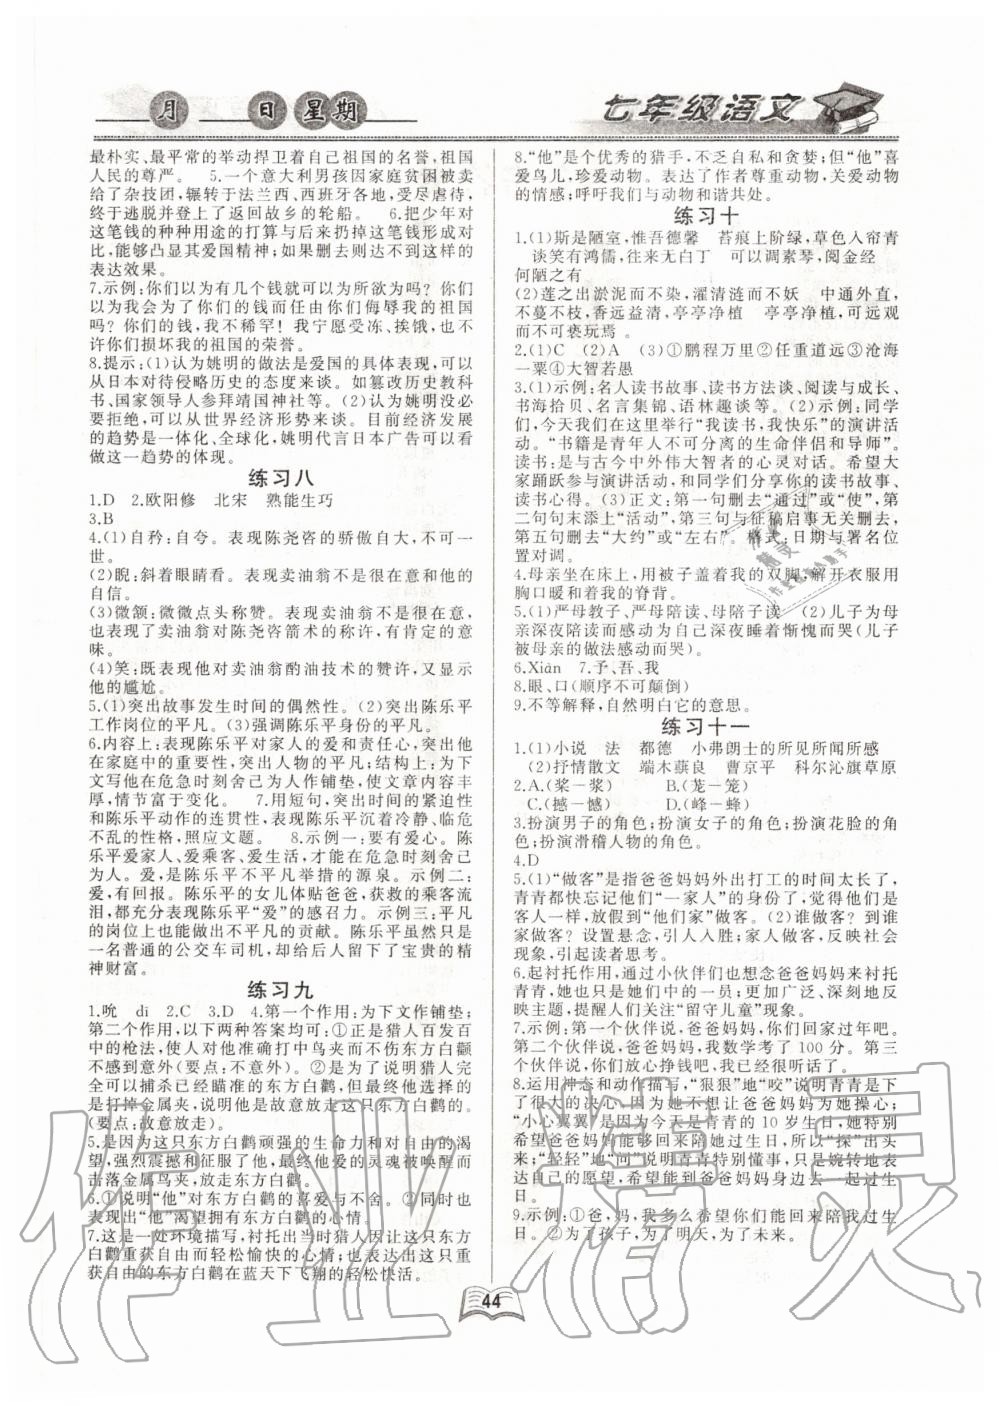 月 日 星期
七年级语文
最朴实、最平常的举动捍卫着自己祖国的名誉,祖国
人民的尊严。 5.一个意大利男孩因家庭贫困被卖
给了杂技团,辗转于法兰西、西班牙各地,受尽虐待,
终于逃脱并登上了返回故乡的轮船。 6.把少年对
这笔钱的种种用途的打算与后来扔掉这笔钱作对
比,能够凸显其爱国精神;如果删去则达不到这样的
表达效果。
7.示例:你们以为有几个钱就可以为所欲为吗?你们
以为我会为了你们的钱而任由你们侮辱我的祖国
吗?你们的钱,我不稀罕!我宁愿受冻、挨饿,也不
许你们损坏我的祖国的荣誉。
8.提示:(1)认为姚明的做法是爱国的具体表现,可以
从日本对待侵略历史的态度来谈。如篡改历史教科
书、国家领导人参拜靖国神社等。(2)认为姚明没必
要拒绝,可以从世界经济形势来谈。目前经济发展
的趋势是一体化、全球化,姚明代言日本广告可以看
做这一趋势的体现。
练习八
1.D 2.欧阳修 北宋 熟能生巧
3.B
4.(1)自矜:自夸。表现陈尧咨的骄傲自大,不可一
世。
(2)睨:斜着眼睛看。表现卖油翁不是很在意他的
自信。
(3)微颔:微微点头称赞。表现卖油翁不是很在意,
也表现了卖油翁对陈尧咨箭术的称许,有肯定的意
味。
(4)笑:既表现他对卖油翁酌油技术的赞许,又显示
他的尴尬。
5.(1)突出故事发生时间的偶然性。(2)突出陈乐平
工作岗位的平凡。(3)强调陈乐平身份的平凡。
6.内容上:表现陈乐平对家人的爱和责任心,突出他
在家庭中的重要性,突出人物的平凡;结构上:为下
文写他在危急时刻舍己为人作铺垫,使文章内容丰
厚,情节富于变化。 7.用短句,突出时间的紧迫性
和陈乐平动作的连贯性,表现陈乐平沉着冷静、临危
不乱的性格,照应文题。 8.示例一:要有爱心。陈
乐平爱家人、爱乘客、爱生活,才能在危急时刻舍己
为人。爱,是陈乐平不平凡举措的源泉。示例二:
爱,有回报。陈乐平的女儿体贴爸爸,获救的乘客流
泪,都充分表现了陈乐平“爱”的感召力。示例三:平凡
的岗位上也能做出不平凡的贡献。陈乐平虽然只是
一名普通的公交车司机,却给后人留下了宝贵的精
神财富。
练习九
1.吮 dī 2.C 3.D 4.第一个作用:为下文作铺垫;
第二个作用,以下两种答案均可:①正是猎人百发百
中的枪法,使人对他准确打中鸟夹而不是打中白鹳
不感到意外(要点:不意外)。②是为了说明猎人完
全可以捕杀已经瞄准的东方白鹳,但他最终选择的
是打掉金属夹,说明他是故意放走这只东方白鹳的。
(要点:故意放走)。
5.是因为这只东方白鹳顽强的生命力和对自由的渴
望,强烈震撼和征服了他,使他美好的灵魂被唤醒而
击落金属鸟夹,放走东方白鹳。
6.①说明“他”对东方白鹳的喜爱与不舍。②同时也
表现出“他”渴望拥有东方白鹳的心情。
7.这是一处环境描写,衬托出当时猎人因这只东方白
鹳重获自由而轻松愉快的心情;也表达出对这只重
获自由的东方白鹳在蓝天下飞翔的轻松快活。
8.“他”是个优秀的猎手,不乏自私和贪婪;但“他”喜
爱鸟儿,珍爱动物。表达了作者尊重动物,关爱动物
的情感;呼吁我们与动物和谐共处。
练习十
1.(1)斯是陋室,惟吾德馨 苔痕上阶绿,草色入帘青
谈笑有鸿儒,往来无白丁 可以调素琴,阅金经
何陋之有
(2)莲之出淤泥而不染,濯清涟而不妖 中通外直,
不蔓不枝,香远益清,亭亭净植 亭亭净植,可远观
而不可亵玩焉。
2.(1)C (2)A (3)①鹏程万里②任重道远③沧海
一粟④大智若愚
3.(1)示例:名人读书故事、读书方法谈、阅读与成长、
书海拾贝、名言集锦、语林趣谈等。(2)示例:同学
们,今天我们在这里举行“我读书,我快乐”的演讲活
动。“书籍是青年人不可分离的生命伴侣和导师”。
读书:是与古今中外伟大智者的心灵对话。希望大
家踊跃参与演讲活动,和同学们分享你的读书故事、
读书心得。(3)正文:第一句删去“通过”或“使”,第
二句句末添上“活动”,第三句与征稿启事无关删去,
第五句删去“大约”或“左右”。格式:日期与署名位
置对调。
4.母亲坐在床上,用被子盖着我的双脚,解开衣服用
胸口暖和着我的脊背。
5.(1)严母教子、严母陪读、母陪子读 (2)儿子为母
亲深夜陪读而感动为自己深夜睡着惭愧而哭(儿子
被母亲的做法感动而哭)。
6.Xiàn 7.予、吾、我
8.眼、口(顺序不可颠倒)
9.不等解释,自然明白它的意思。
练习十一
1.(1)小说 法 都德 小弗朗士的所见所闻所感
(2)抒情散文 端木蕻良 曹京平 科尔沁旗草原
2.A.(桨—浆) B.(茏—笼)
C.(撼—憾) D.(峰—蜂)
3.扮演男子的角色;扮演女子的角色;扮演花脸的角
色;扮演滑稽人物的角色。
4.D
5.(1)“做客”是指爸爸妈妈外出打工的时间太长了,
青青都快忘记他们“一家人”的身份了,觉得他们是
客人一样,放假到“他们家”做客。(2)谁做客?到谁
家做客?设置悬念,引人入胜;家人做客,反映社会
现象,引起读者思考。
6.起衬托作用,通过小伙伴们也想念爸爸妈妈来衬托
青青,她只是她们中的一员;使主题更加广泛、深刻地
反映主题,提醒人们关注“留守儿童”现象。
7.示例:第一个伙伴说,爸爸妈妈,你们回家过年吧。
第二个伙伴说,爸爸妈妈,我数学考了100分。第三
个伙伴说,你们放心挣钱吧,我已经很听话了。
8.运用神态和动作描写,“狠狠”地“瞪”说明青青是下
了很大的决心,因为她不想让爸爸妈妈为她操心;
“小心翼翼”的样子表现了今天是青青的10岁生日,她特别
希望爸爸妈妈能够回来陪她过生日,所以“探”出头
来;“轻轻”地“问”说明青青特别懂事,只能婉转地表
达自己的愿望,希望能到爸爸妈妈身边去一起过生
日。
9.示例:①爸,妈,我多么希望你们能回来陪我过生
日。②为了孩子,为了明天,为了未来。
44
作业精灵